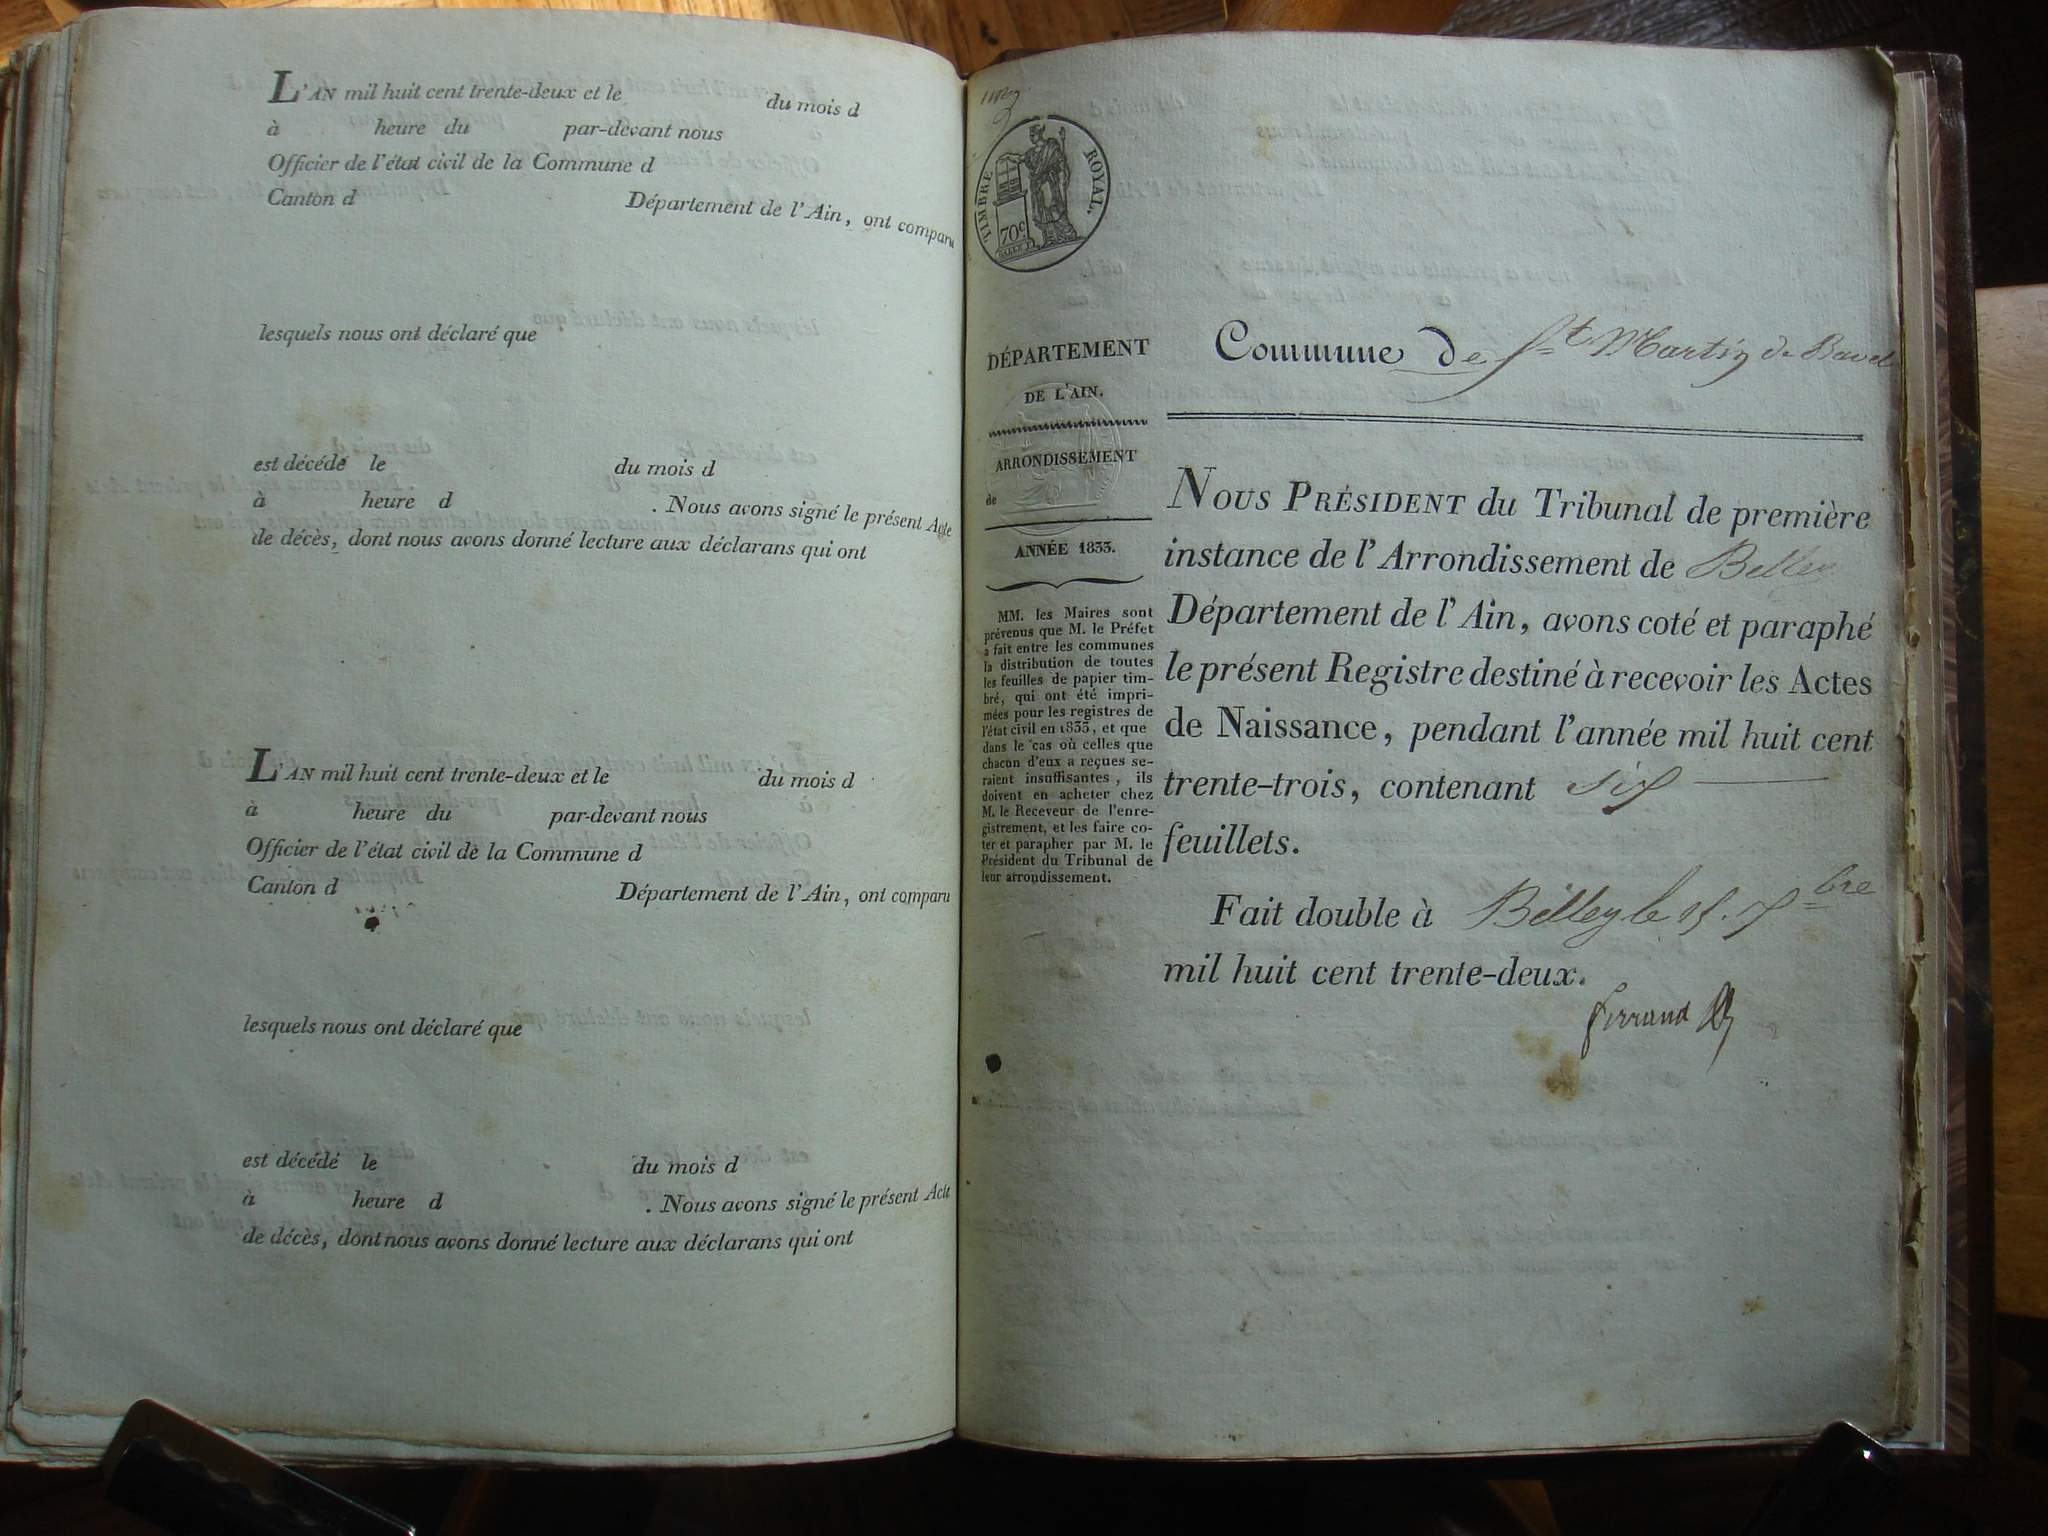 L'AN mil huit cent trente-deux et le du mois d
à heure du par-devant nous
Officier de l'état civil de la Commune d
Canton d Département de l'Ain, ont comparu
lesquels nous ont déclaré que
est décédé le du mois d
à heure d . Nous avons signé le présent Acte
de décès, dont nous avons donné lecture aux déclarans qui ont
L'AN mil huit cent trente-deux et le du mois d
à heure du par-devant nous
Officier de l'état civil de la Commune d
Canton d Département de l'Ain, ont comparu
lesquels nous ont déclaré que
est décédé le du mois d
à heure d . Nous avons signé le présent Acte
de décès, dont nous avons donné lecture aux déclarans qui ont
TIMBRE ROYAL.
70c
DÉPARTEMENT
DE L'AIN.
ARRONDISSEMENT
de
ANNÉE 1833.
MM. les Maires sont
prévenus que M. le Préfet
a fait entre les communes
la distribution de toutes
les feuilles de papier tim-
bré, qui ont été impri-
mées pour les registres de
l'état civil en 1833, et que
dans le cas où celles que
chacun d'eux a reçues se-
raient insuffisantes, ils
doivent en acheter chez
M. le Receveur de l'enre-
gistrement, et les faire co-
ter et parapher par M. le
Président du Tribunal de
leur arrondissement.
Commune de St Martin de Bavel
NOUS PRÉSIDENT du Tribunal de première
instance de l'Arrondissement de Belley
Département de l'Ain, avons coté et paraphé
le présent Registre destiné à recevoir les Actes
de Naissance, pendant l'année mil huit cent
trente-trois, contenant six
feuillets.
Fait double à Belley le 15. Xbre
mil huit cent trente-deux.
Ferrand